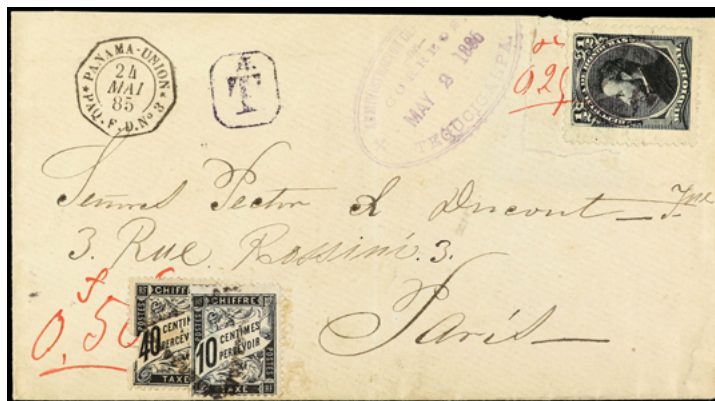 PANAMA-UNION
24
MAI
85
PAQ. F. D. Nº 3
A.
T
CORREOS
MAY 2 1885
TEGUCIGALPA.
0.25
Señores Pector et Ducout_Jne
3. Rue Rossini. 3.
Paris
0,50
CHIFFRE
40 CENTIMES
PERCEVOIR
TAXE
POSTES
CHIFFRE
10 CENTIMES
A PERCEVOIR
POSTES
TAXE